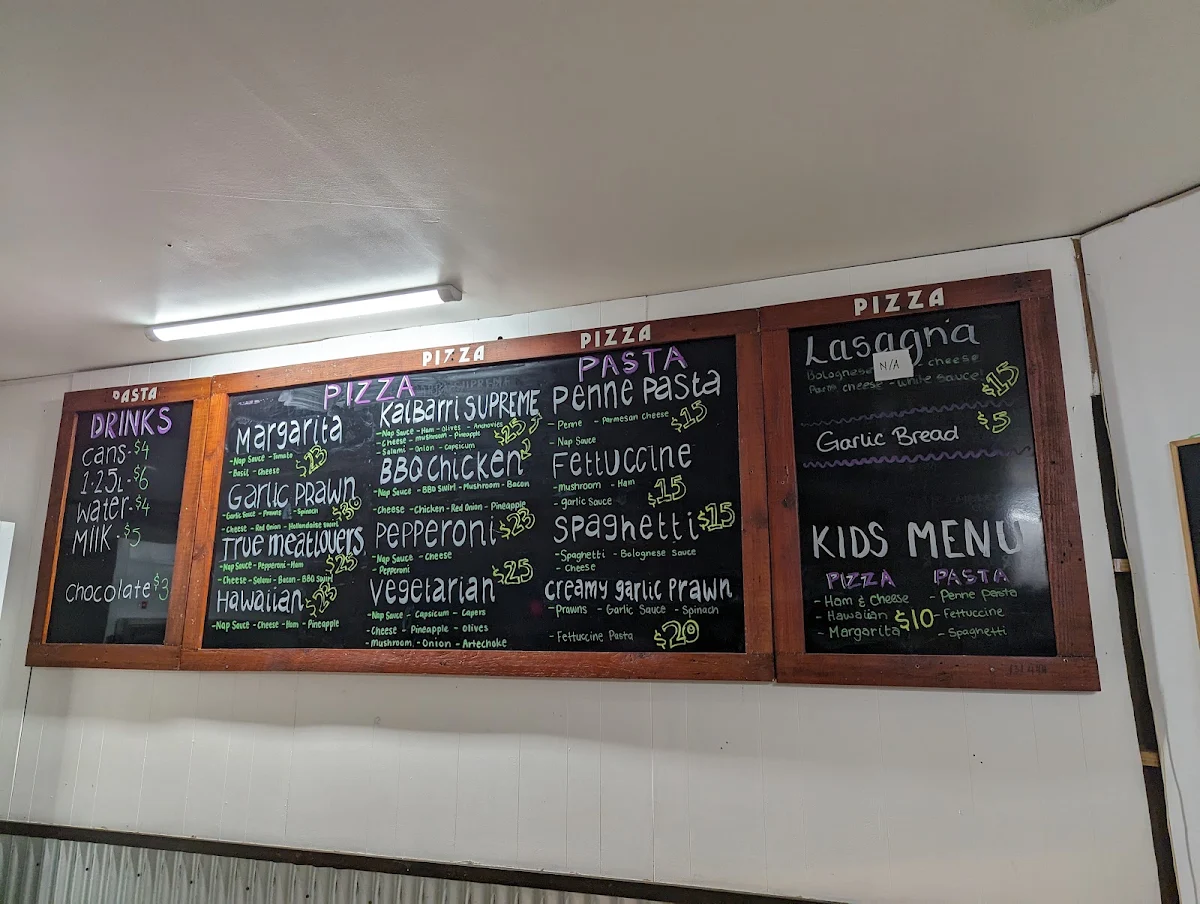 PASTA
PIZZA
PIZZA
PIZZA
DRINKS
cans - $4
1.25L - $6
water - $4
Milk - $5
chocolate $3
PIZZA
Margarita
- Nap Sauce - Tomato
- Basil - Cheese
$23
Garlic Prawn
- Garlic Sauce - Prawns - Spinach
- Cheese - Red Onion - Hollandaise sauce
$30
True meatlovers
- Nap Sauce - Pepperoni - Ham
- Cheese - Salami - Bacon - BBQ Swirl
$25
Hawaiian
$25
- Nap Sauce - Cheese - Ham - Pineapple
Kalbarri SUPREME
- Nap Sauce - Ham - Olives - Anchovies
- Cheese - Mushroom - Pineapple
- Salami - Onion - Capsicum
$25
BBQ Chicken
- Nap Sauce - BBQ Swirl - Mushroom - Bacon
- Cheese - Chicken - Red Onion - Pineapple
Pepperoni
$23
- Nap Sauce - Cheese
- Pepperoni
Vegetarian
$25
- Nap Sauce - Capsicum - Capers
- Cheese - Pineapple - Olives
- Mushroom - Onion - Artechoke
PASTA
Penne Pasta
- Penne - Parmesan Cheese
- Nap Sauce
$15
Fettuccine
- Mushroom - Ham
- Garlic Sauce
$15
Spaghetti
$15
- Spaghetti - Bolognese Sauce
- Cheese
creamy garlic Prawn
- Prawns - Garlic Sauce - Spinach
- Fettuccine Pasta
$20
Lasagna
Bolognese cheese
N/A
Parm cheese - white sauce
$15
Garlic Bread
$5
KIDS MENU
PIZZA
- Ham & Cheese
- Hawaiian
- Margarita
$10
PASTA
- Penne Pasta
- Fettuccine
- Spaghetti